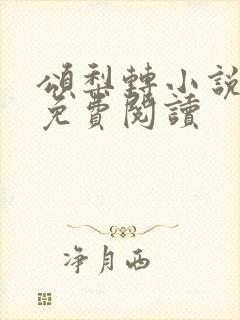 頌梨轉小說
免費閱讀
净月西